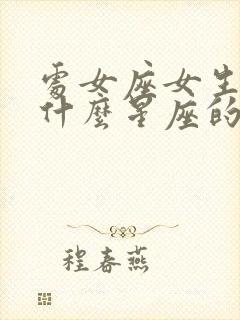 處女座女生
什麼星座的
程春燕